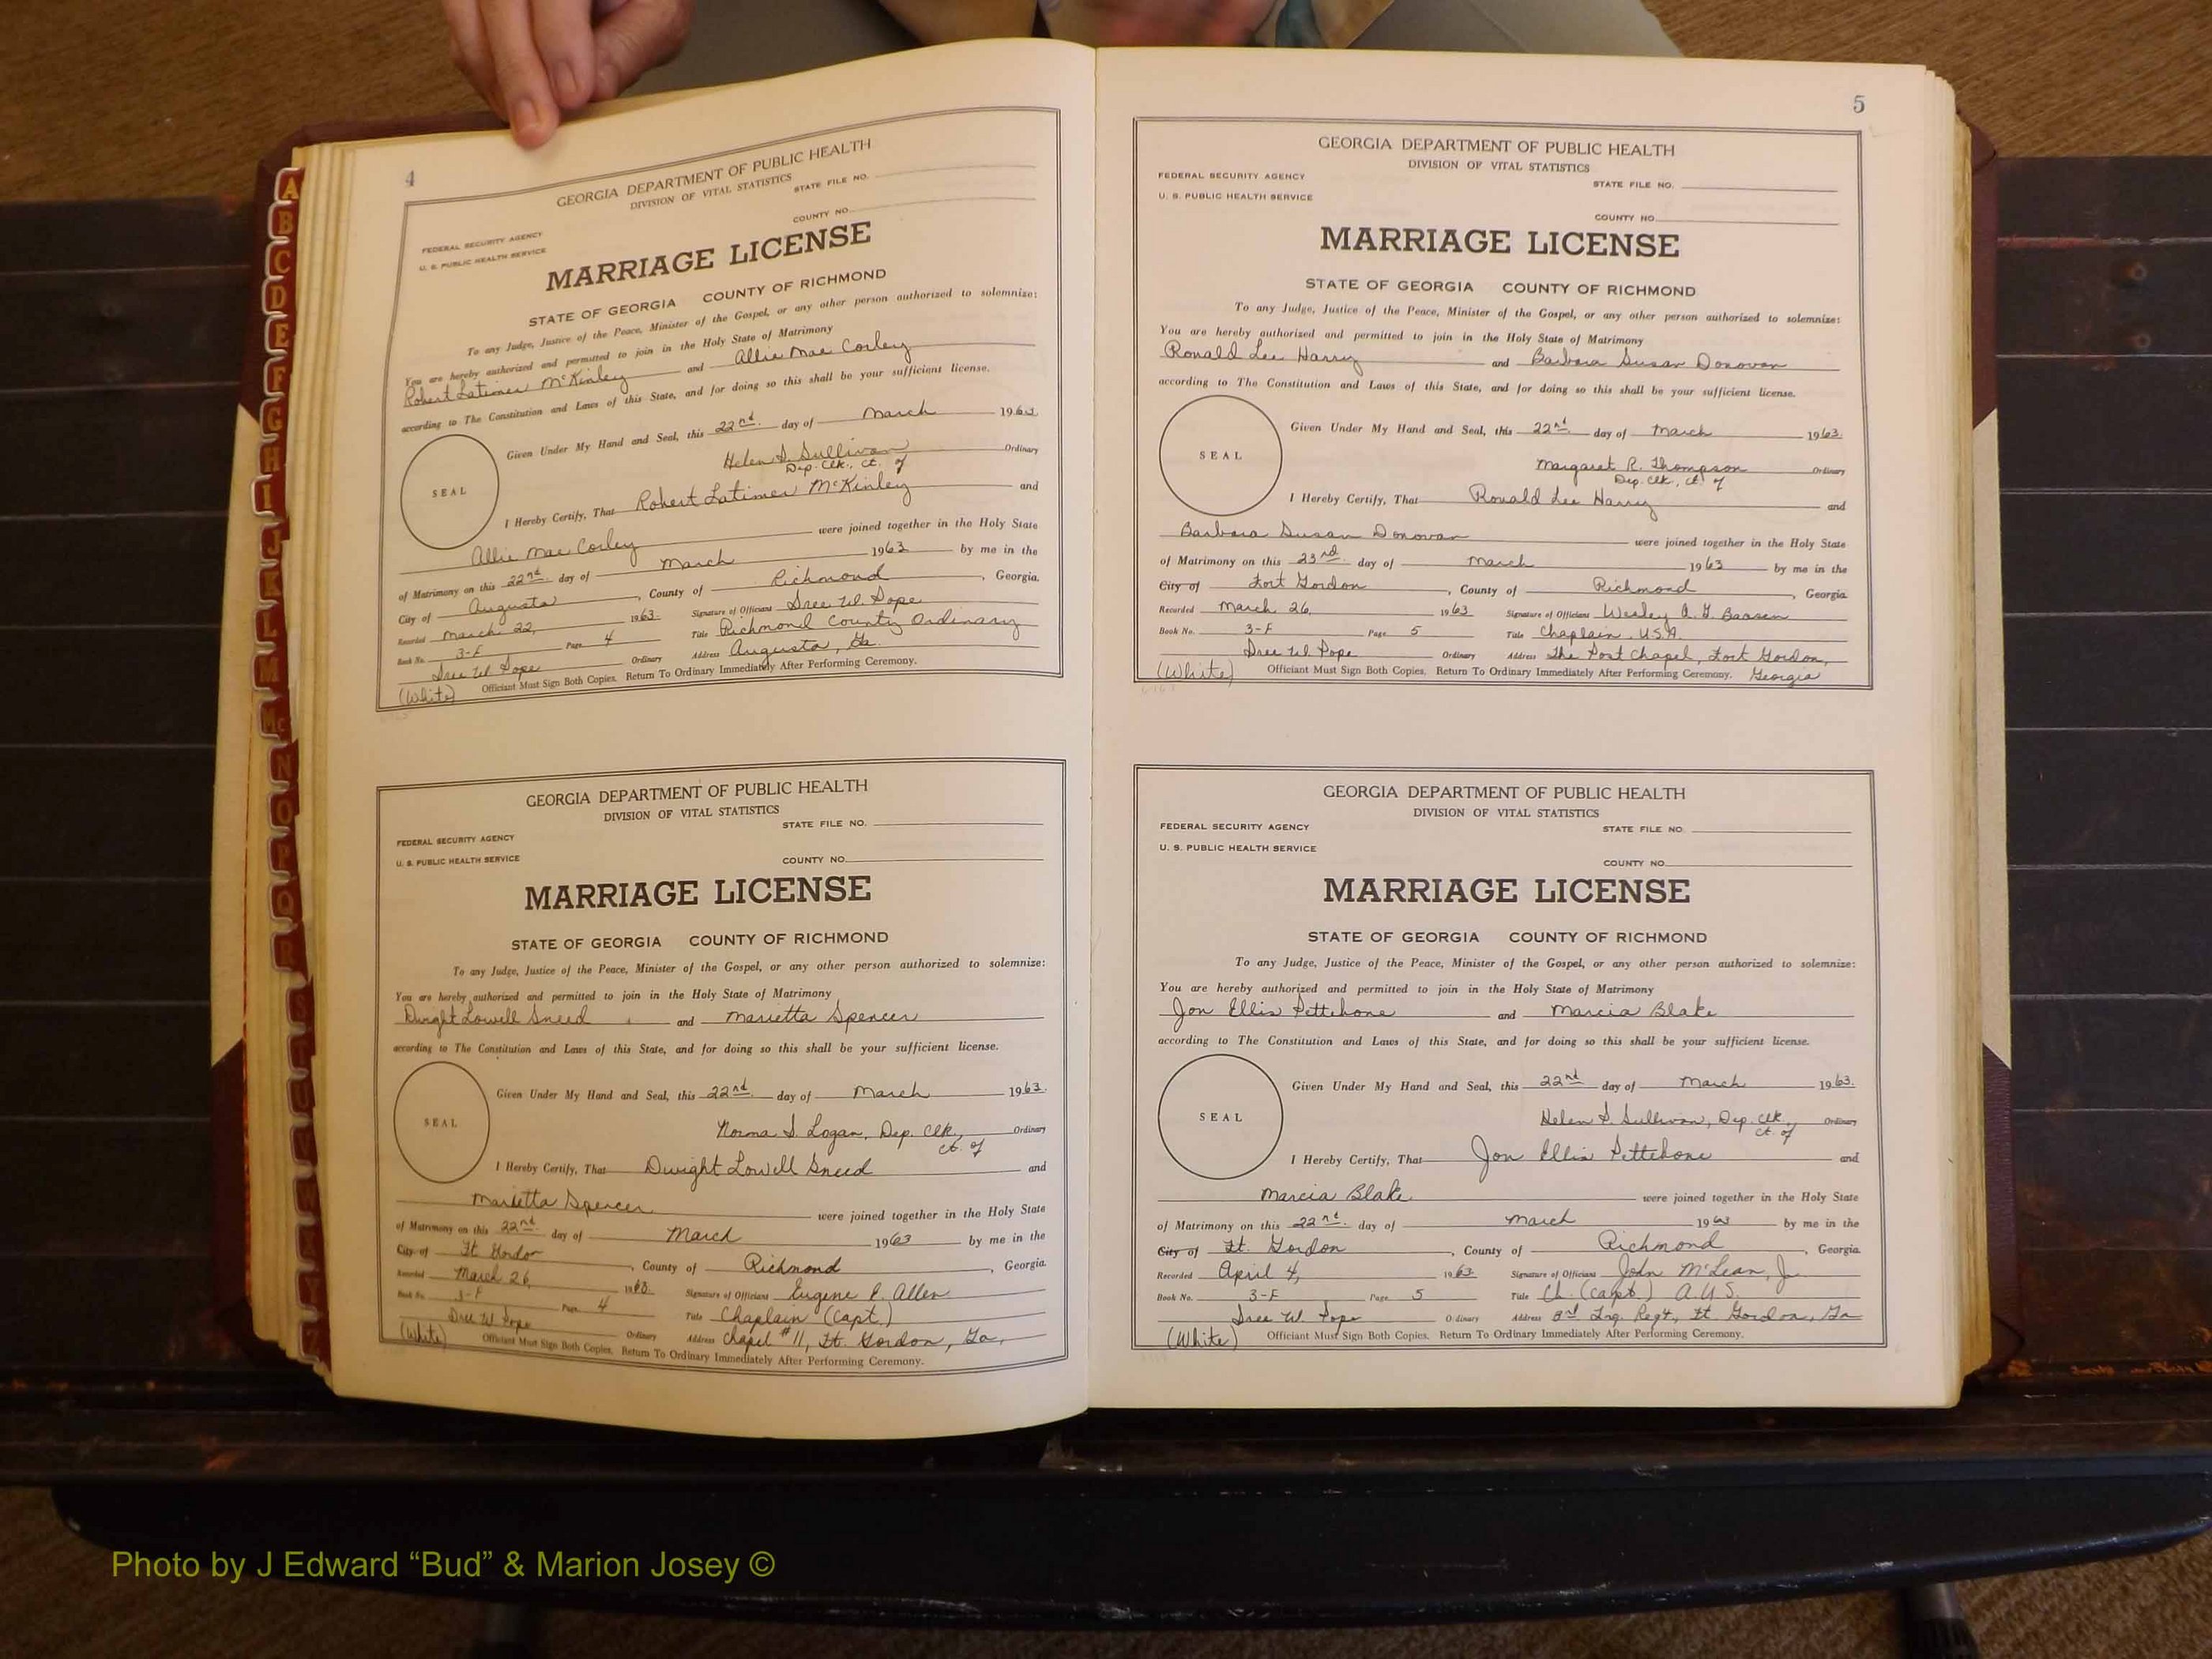 A
B
C
D
E
F
G
H
I
J
K
L
M
Mc
N
O
P
Q
R
S
4
GEORGIA DEPARTMENT OF PUBLIC HEALTH
DIVISION OF VITAL STATISTICS
STATE FILE NO.
COUNTY NO.
FEDERAL SECURITY AGENCY
U. S. PUBLIC HEALTH SERVICE
MARRIAGE LICENSE
STATE OF GEORGIA COUNTY OF RICHMOND
To any Judge, Justice of the Peace, Minister of the Gospel, or any other person authorized to solemnize:
You are hereby authorized and permitted to join in the Holy State of Matrimony
Robert Latimer McKinley and Allie Mae Corley
according to The Constitution and Laws of this State, and for doing so this shall be your sufficient license.
Given Under My Hand and Seal, this 22nd. day of March 1963
Helen S. Sullivan Ordinary
Dep. Clk., Ct. of
SEAL
I Hereby Certify, That Robert Latimer McKinley and
Allie Mae Corley were joined together in the Holy State
of Matrimony on this 22nd. day of March 1963 by me in the
City of Augusta, County of Richmond, Georgia.
Recorded March 22, 1963. Signature of Officiant Dree W. Pope
Book No. 3-F Page 4 Title Richmond County Ordinary
Dree W. Pope Ordinary Address Augusta, Ga.
(White) Officiant Must Sign Both Copies. Return To Ordinary Immediately After Performing Ceremony.
GEORGIA DEPARTMENT OF PUBLIC HEALTH
DIVISION OF VITAL STATISTICS
STATE FILE NO.
FEDERAL SECURITY AGENCY
U. S. PUBLIC HEALTH SERVICE
COUNTY NO.
MARRIAGE LICENSE
STATE OF GEORGIA COUNTY OF RICHMOND
To any Judge, Justice of the Peace, Minister of the Gospel, or any other person authorized to solemnize:
You are hereby authorized and permitted to join in the Holy State of Matrimony
Dwight Lowell Sneed and Marietta Spencer
according to The Constitution and Laws of this State, and for doing so this shall be your sufficient license.
Given Under My Hand and Seal, this 22nd. day of March 1963.
Norma S. Logan, Dep. Clk., Ordinary
Ct. of
SEAL
I Hereby Certify, That Dwight Lowell Sneed and
Marietta Spencer were joined together in the Holy State
of Matrimony on this 22nd. day of March 1963 by me in the
City of Ft Gordon, County of Richmond, Georgia.
Recorded March 26, 1963. Signature of Officiant Eugene P. Allen
Book No. 3-F Page 4 Title Chaplain (Capt.)
Dree W. Pope Ordinary Address Chapel #11, Ft. Gordon, Ga.,
(White) Officiant Must Sign Both Copies. Return To Ordinary Immediately After Performing Ceremony.
5
GEORGIA DEPARTMENT OF PUBLIC HEALTH
DIVISION OF VITAL STATISTICS
FEDERAL SECURITY AGENCY
STATE FILE NO.
U. S. PUBLIC HEALTH SERVICE
COUNTY NO.
MARRIAGE LICENSE
STATE OF GEORGIA COUNTY OF RICHMOND
To any Judge, Justice of the Peace, Minister of the Gospel, or any other person authorized to solemnize:
You are hereby authorized and permitted to join in the Holy State of Matrimony
Ronald Lee Harry and Barbara Susan Donovan
according to The Constitution and Laws of this State, and for doing so this shall be your sufficient license.
Given Under My Hand and Seal, this 22nd. day of March 1963.
Margaret R. Thompson Ordinary
Dep. Clk., Ct. of
SEAL
I Hereby Certify, That Ronald Lee Harry and
Barbara Susan Donovan were joined together in the Holy State
of Matrimony on this 23rd. day of March 1963 by me in the
City of Fort Gordon, County of Richmond, Georgia
Recorded March 26, 1963. Signature of Officiant Wesley A. G.
Book No. 3-F Page 5 Title Chaplain, USA.
Dree W. Pope Ordinary Address The Post Chapel, Fort Gordon,
(White) Officiant Must Sign Both Copies. Return To Ordinary Immediately After Performing Ceremony. Georgia
GEORGIA DEPARTMENT OF PUBLIC HEALTH
DIVISION OF VITAL STATISTICS
FEDERAL SECURITY AGENCY
STATE FILE NO.
U. S. PUBLIC HEALTH SERVICE
COUNTY NO.
MARRIAGE LICENSE
STATE OF GEORGIA COUNTY OF RICHMOND
To any Judge, Justice of the Peace, Minister of the Gospel, or any other person authorized to solemnize:
You are hereby authorized and permitted to join in the Holy State of Matrimony
Jon Ellis Pettebone and Marcia Blake
according to The Constitution and Laws of this State, and for doing so this shall be your sufficient license.
Given Under My Hand and Seal, this 22nd. day of March 1963.
Helen S. Sullivan, Dep. Clk., Ordinary
Ct. of
SEAL
I Hereby Certify, That Jon Ellis Pettebone and
Marcia Blake were joined together in the Holy State
of Matrimony on this 22nd. day of March 1963 by me in the
City of Ft. Gordon, County of Richmond, Georgia
Recorded April 4, 1963. Signature of Officiant John McLean, Jr.
Book No. 3-F Page 5 Title Ch. (Capt.) A.U.S.
Dree W. Pope Ordinary Address 3rd Tng. Regt, Ft. Gordon, Ga
(White) Officiant Must Sign Both Copies. Return To Ordinary Immediately After Performing Ceremony.
Photo by J Edward “Bud” & Marion Josey ©